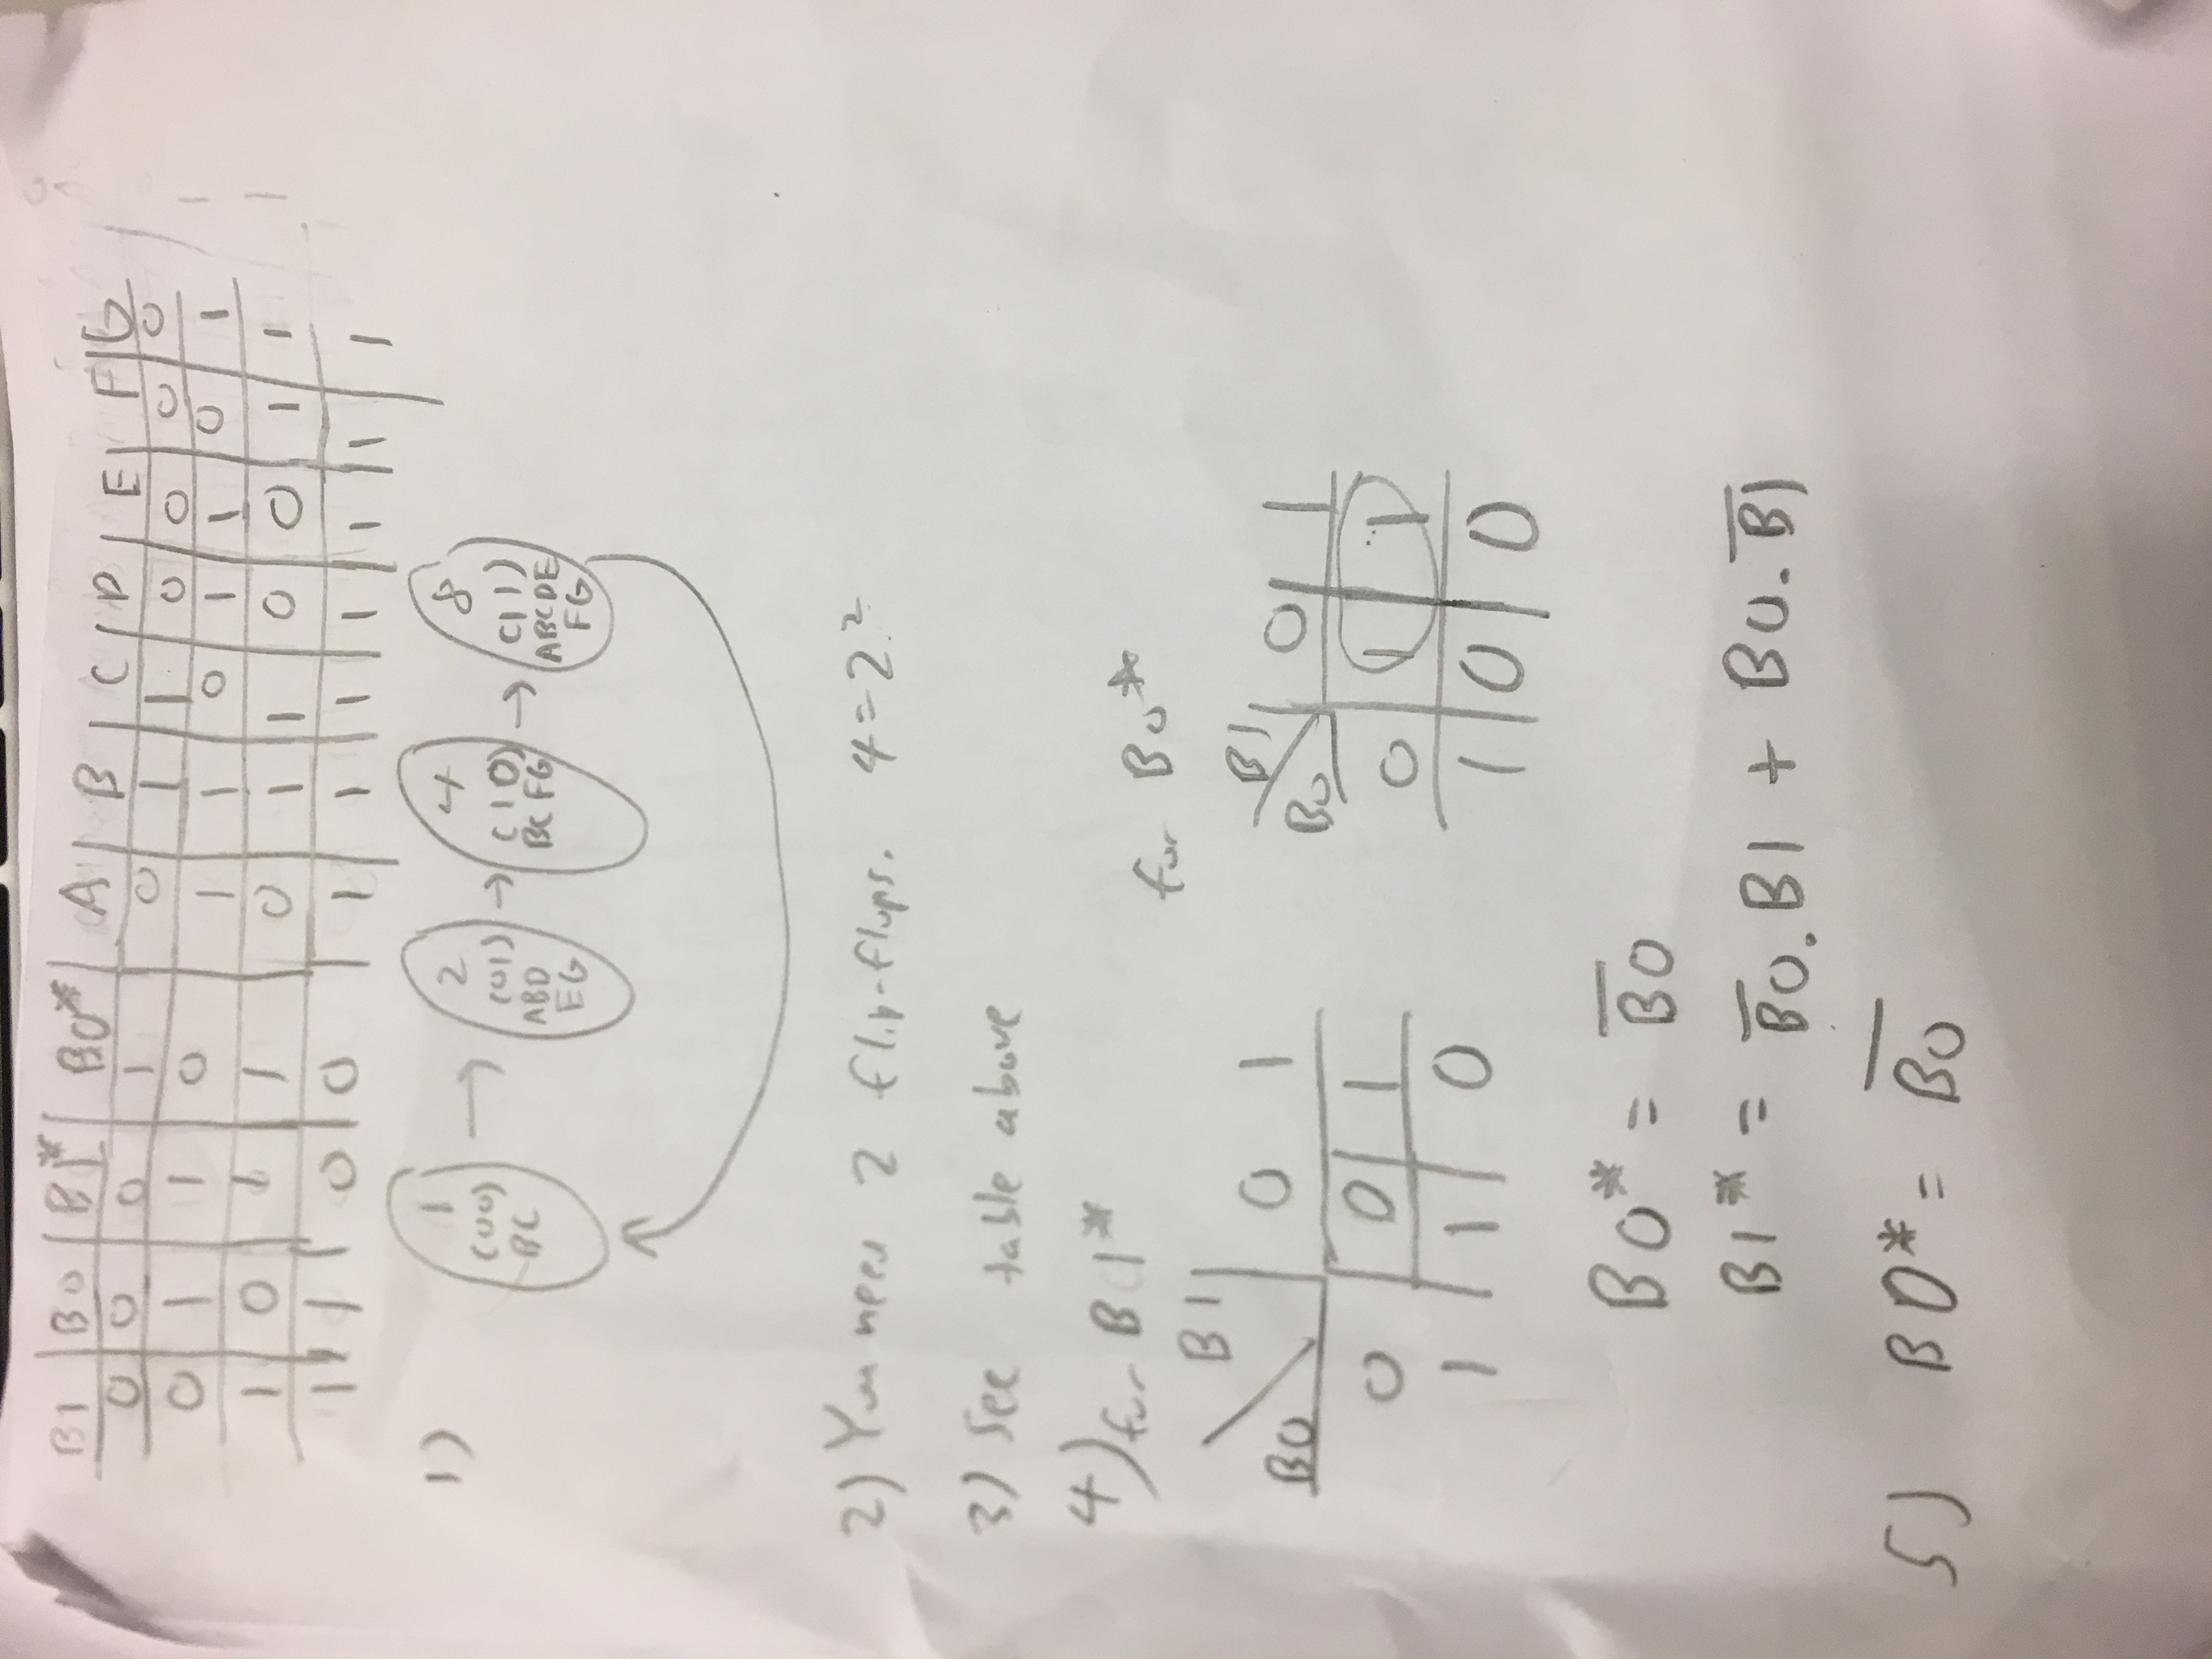 B1 B0 B1* B0* A B C D E F G
0 0 0 1 0 1 1 0 0 0 0
0 1 1 0 1 1 0 1 1 0 1
1 0 1 1 0 1 1 0 0 1 1
1 1 0 0 1 1 1 1 1 1 1
1)
1 2 4 8
(00) (01) (10) (11)
BC ABD BC FG ABCDE
EG FG
2) You need 2 flip-flops. 4=2²
3) See table above
4) for B1* for B0*
B1 0 1 B1 0 1
B0 B0
0 0 1 0 1 1
1 1 0 1 0 0
B0* = B̅0̅
B1* = B̅0.B1 + B0.B̅1̅
5) B0* = B̅0̅